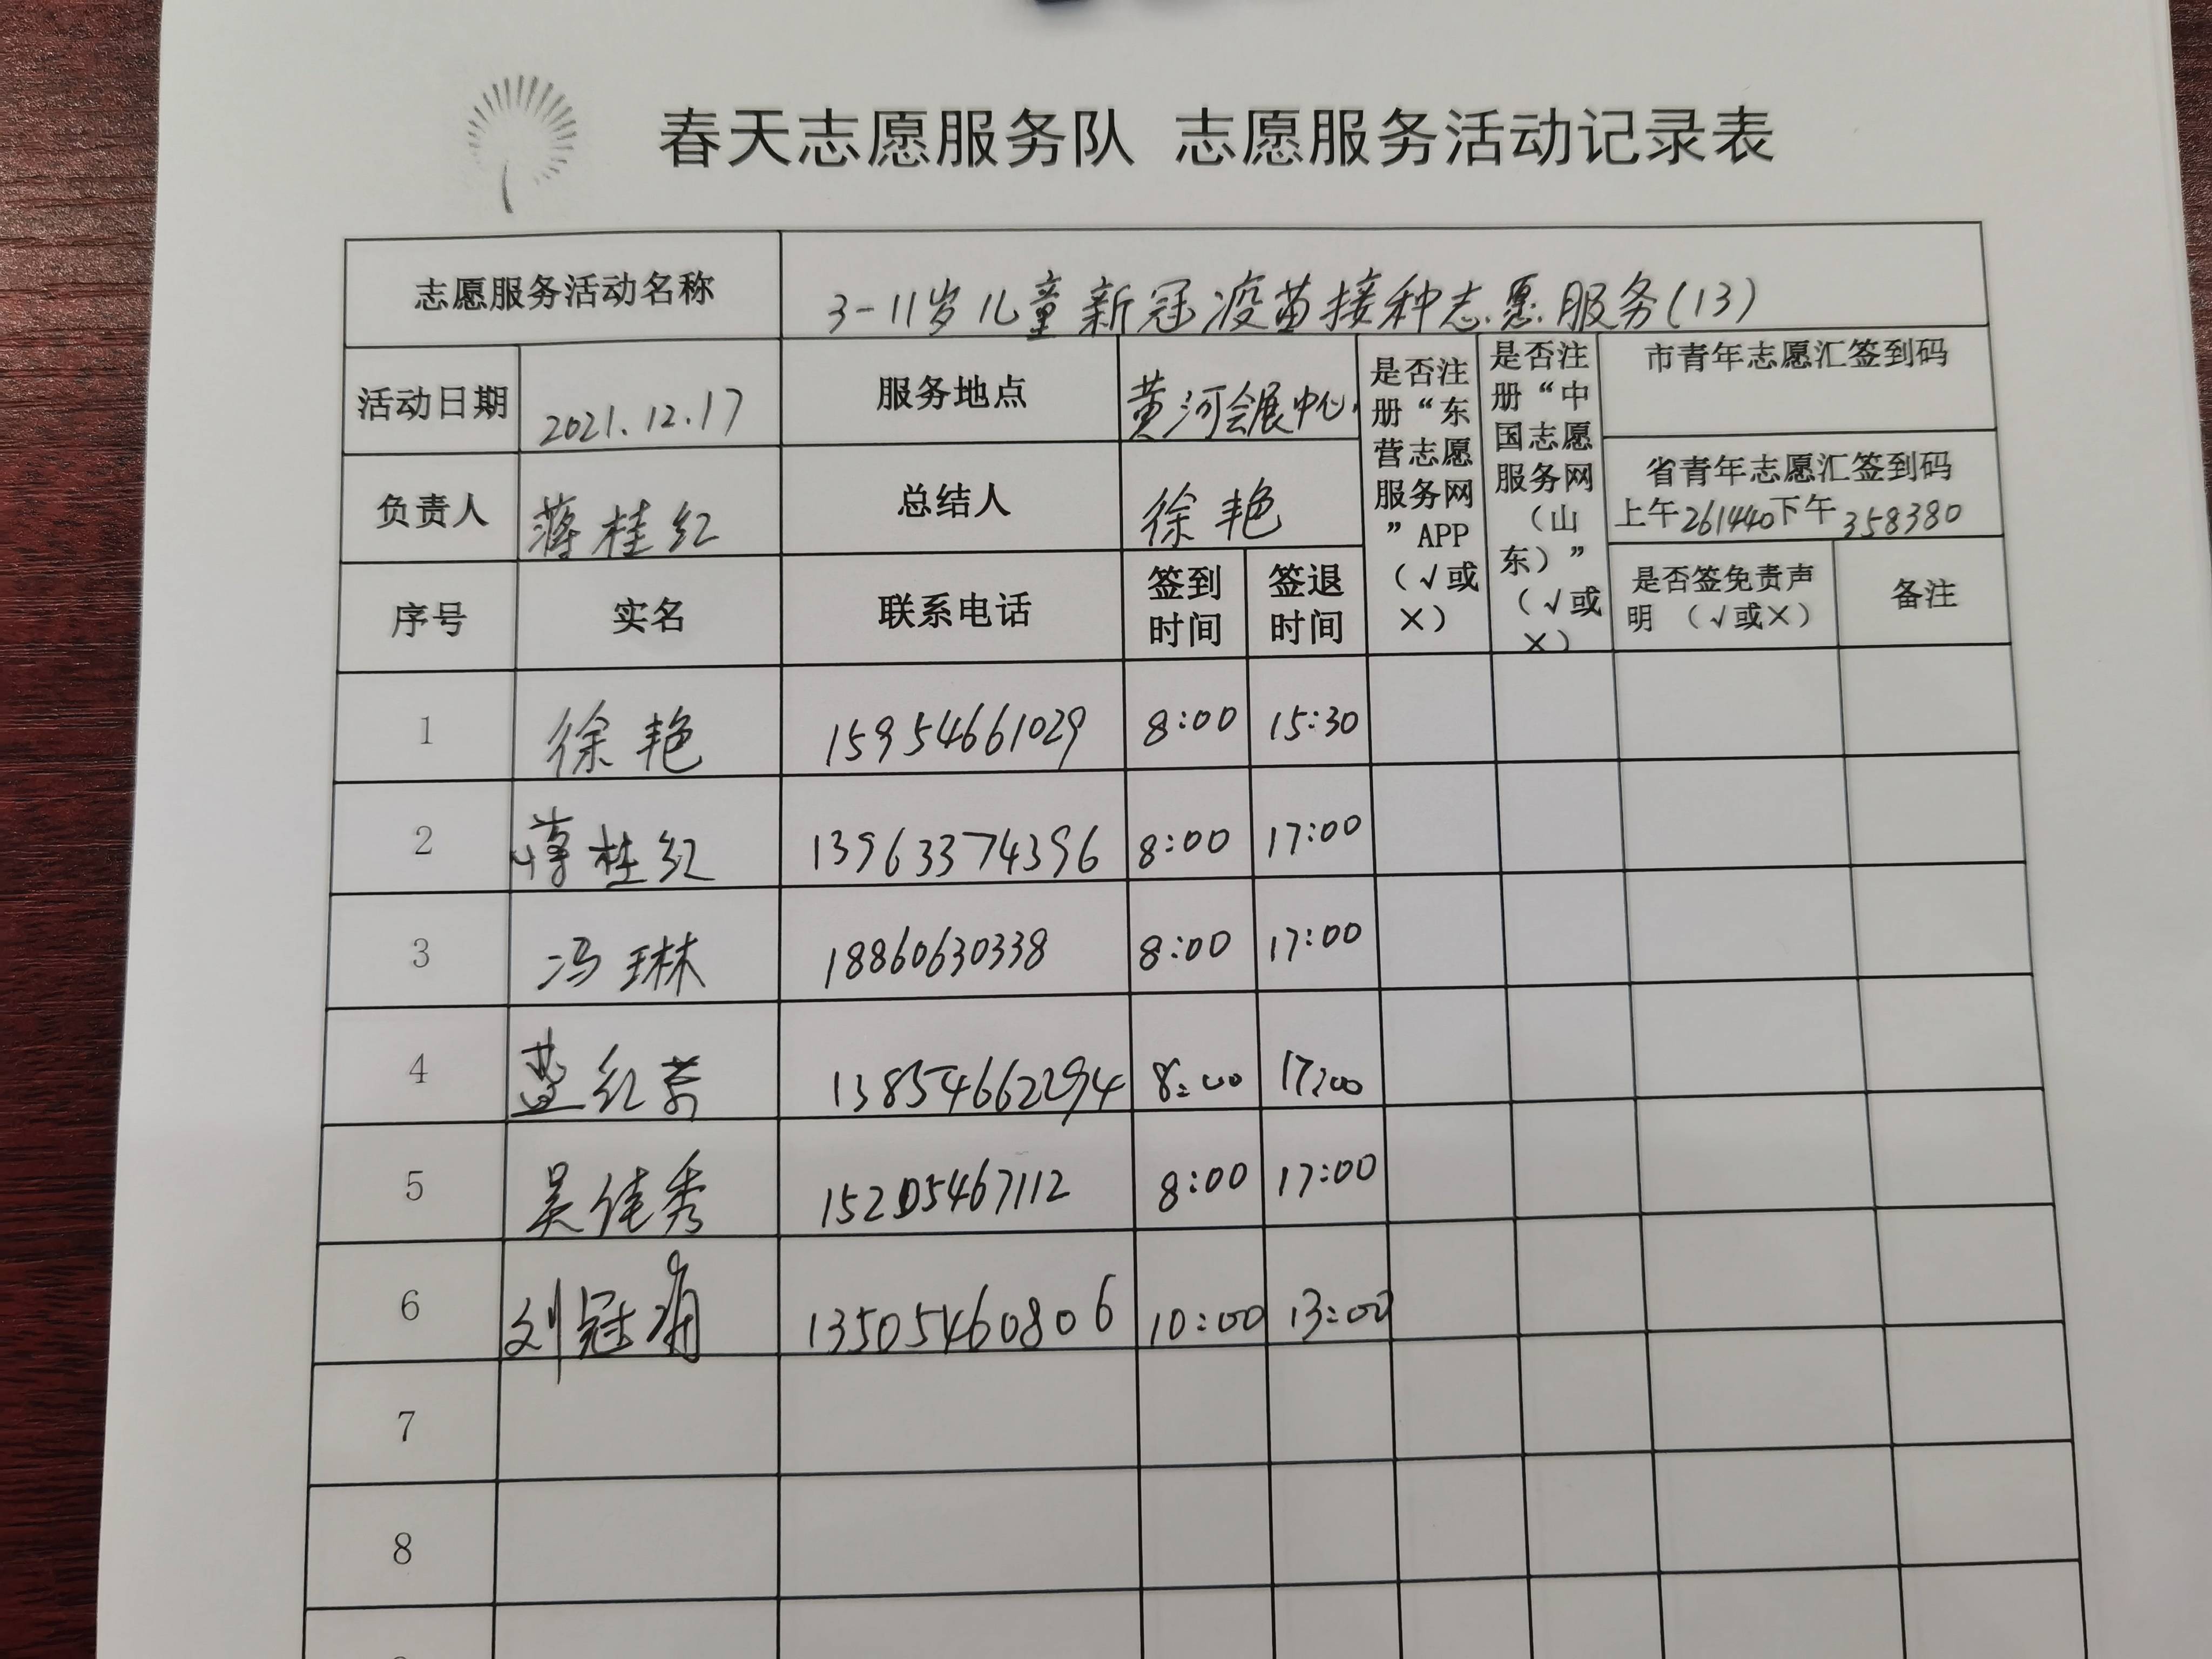 春天志愿服务队 志愿服务活动记录表
志愿服务活动名称 3-11岁儿童新冠疫苗接种志愿服务(13)
活动日期 2021.12.17 服务地点 黄河会展中心
是否注册“东营志愿服务网”APP（√或×）
是否注册“中国志愿服务网（山东）”（√或×）
市青年志愿汇签到码
省青年志愿汇签到码
上午261440下午358380
负责人 蒋桂红 总结人 徐艳
序号 实名 联系电话 签到时间 签退时间 是否签免责声明（√或×） 备注
1 徐艳 15954661029 8:00 15:30
2 蒋桂红 13963374396 8:00 17:00
3 冯琳 18860630338 8:00 17:00
4 红 13854662294 8:00 17:00
5 吴佳秀 15205467112 8:00 17:00
6 刘冠 13505460806 10:00 13:00
7
8